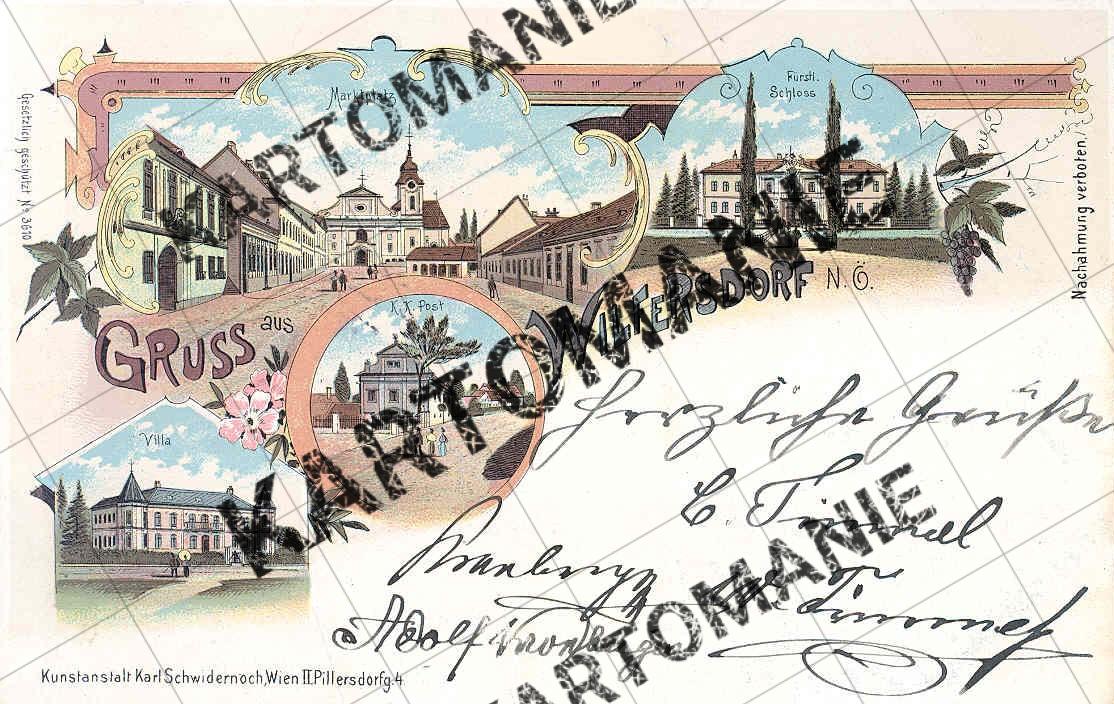 Marktplatz
Fürstl.
Schloss
Gesetzlich geschützt No 3610
Nachahmung verboten.
GRUSS aus
WILFERSDORF N.Ö.
K.K. Post
Villa
Herzliche Grüße
Adolf
Kunstanstalt Karl Schwidernoch, Wien II. Pillersdorfg. 4.
KARTOMANIE
KARTOMANIE
KARTOMANIE
KARTOMANIE